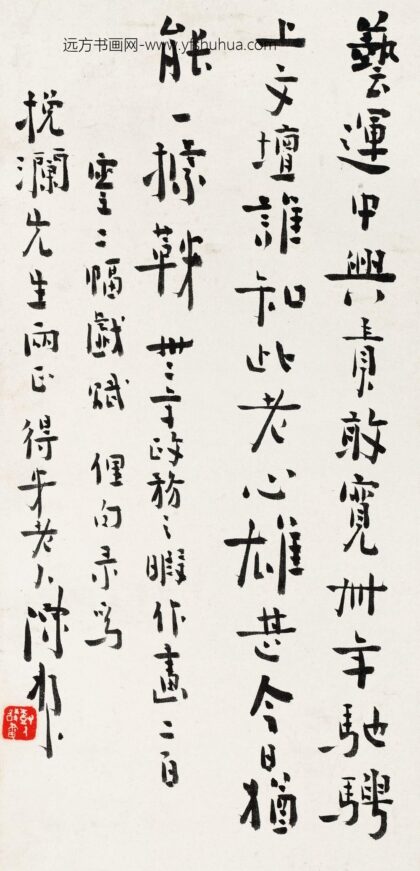 远方书画网-www.yfshuhua.com
藝運中興責敢寬卅年馳騁
上文壇誰知此老心雄甚今日猶
能一據鞍 年政務之暇作畫二百
零二幅戲賦 俚句录爲
挽瀾先生兩正 得 老人陳